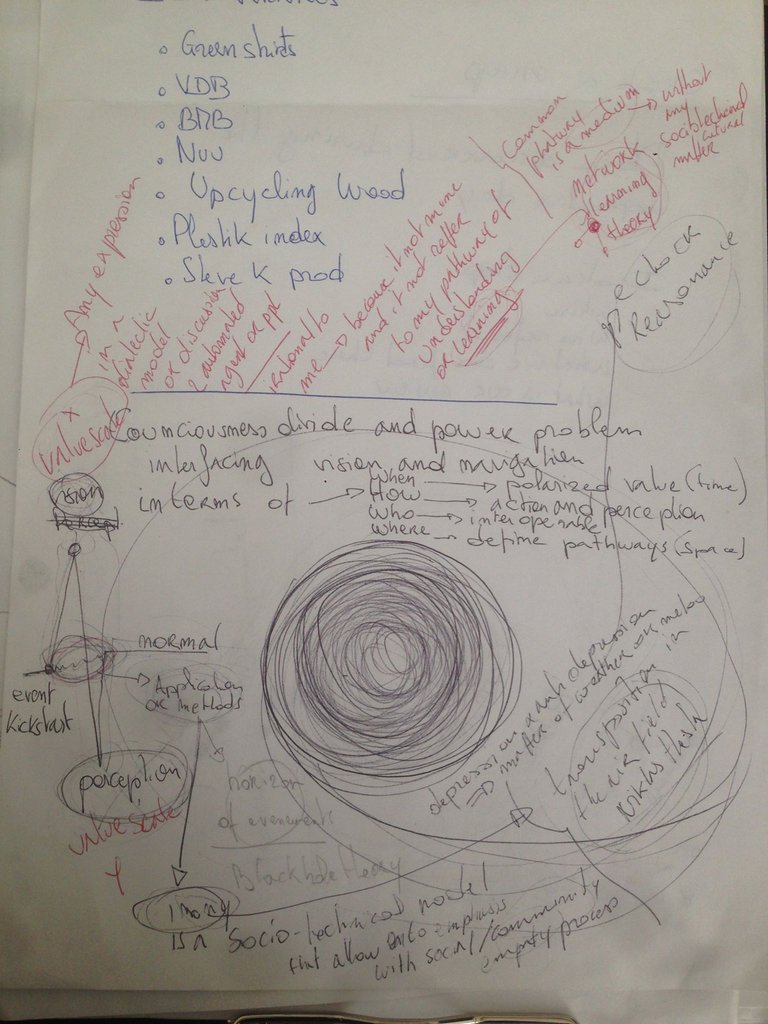 Greenshirts
VDB
BMB
Nuu
Upcycling Wood
Plastik index
Steve K prod
Any expression
in a
dialectic
model
or discussion
2 automated
agent or ppl
irational to
me → because it not mine
and it not refer
to my pathway of
understanding
or learning
Common
pathway
is a medium → without
any
sociotechnical
cutural
matter
network
learning
theory
echock
Reasonance
x
value scale
Counciousness divide and power problem
interfacing vision and navigation
in terms of →
when → polarized value (time)
How → action and perception
who → interoperable
where → define pathways (space)
vision
percept
normal
event
kickstart
Application
or methods
perception
value scale
y
horizon
of evenements
Blackhole theory
depression antidepression
⇒ matter of weather or meteo
transposition in
the air field
irony
is a socio-technical model
that allow onto emphasis
with social/community
empty process